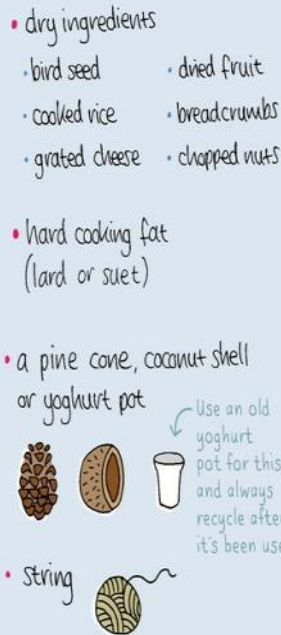 • dry ingredients
• bird seed
• dried fruit
• cooked rice
• breadcrumbs
• grated cheese
• chopped nuts
• hard cooking fat
(lard or suet)
• a pine cone, coconut shell
or yoghurt pot
Use an old
yoghurt
pot for this
and always
recycle after
it's been use
• string